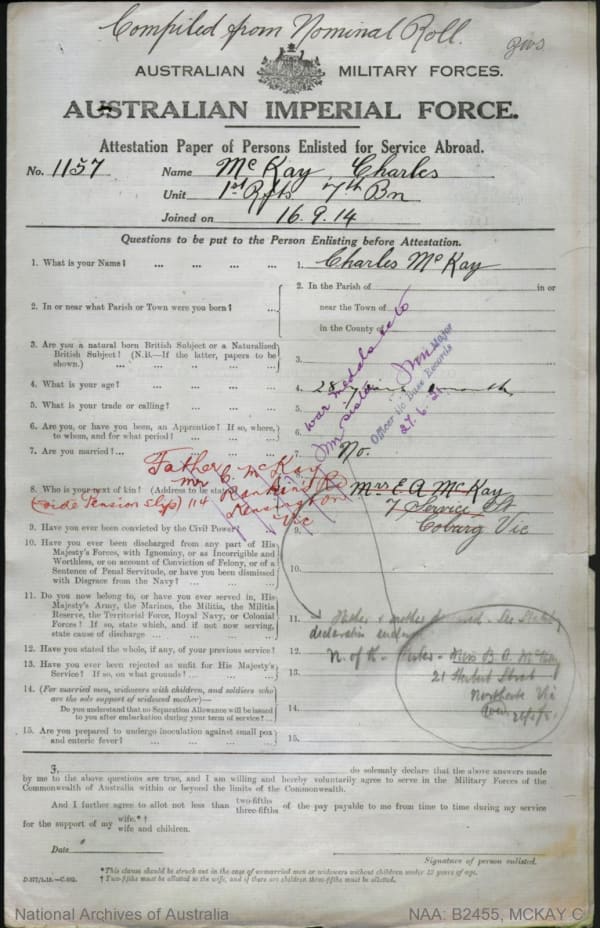 Compiled from Nominal Roll.
AUSTRALIAN MILITARY FORCES.
AUSTRALIAN IMPERIAL FORCE.
Attestation Paper of Persons Enlisted for Service Abroad.
No. 1157 Name McKay, Charles
Unit 1st Rfts 7th Bn
Joined on 16.9.14
Questions to be put to the Person Enlisting before Attestation.
1. What is your Name? ... ... ... ... 1. Charles McKay
2. In or near what Parish or Town were you born? ... ... 2. In the Parish of in or
near the Town of
in the County of
3. Are you a natural born British Subject or a Naturalized
British Subject? (N.B.—If the latter, papers to be
shown.) ... ... ... ... 3.
4. What is your age? ... ... ... ... 4. 28
5. What is your trade or calling? ... ... ... 5.
war medals &c to
sister
Major
Officer i/c Base Records
27.6.21
6. Are you, or have you been, an Apprentice? If so, where,
to whom, and for what period? ... ... ... 6.
7. Are you married? ... ... ... ... 7. No.
Father
Mr C. McKay
8. Who is your next of kin? (Address to be stated) 8. Mrs E A McKay
(vide Pension slip) 114 Rankins Rd
Kensington
Vic
7 Service St
Coburg Vic
9. Have you ever been convicted by the Civil Power? 9.
10. Have you ever been discharged from any part of His
Majesty's Forces, with Ignominy, or as Incorrigible and
Worthless, or on account of Conviction of Felony, or of a
Sentence of Penal Servitude, or have you been dismissed
with Disgrace from the Navy? ... ... ... 10.
11. Do you now belong to, or have you ever served in, His
Majesty's Army, the Marines, the Militia, the Militia
Reserve, the Territorial Force, Royal Navy, or Colonial
Forces? If so, state which, and if not now serving,
state cause of discharge ... ... ... 11.
Father & mother See Stat
declaration
12. Have you stated the whole, if any, of your previous service? 12. N. of K - Sister - Miss B. A. McKay
21 Herbert Street
Northcote Vic
13. Have you ever been rejected as unfit for His Majesty's
Service? If so, on what grounds? ... ... 13.
14. (For married men, widowers with children, and soldiers who
are the sole support of widowed mother)—
Do you understand that no Separation Allowance will be issued
to you after embarkation during your term of service? ... 14.
15. Are you prepared to undergo inoculation against small pox
and enteric fever? ... ... ... ... 15.
I, do solemnly declare that the above answers made
by me to the above questions are true, and I am willing and hereby voluntarily agree to serve in the Military Forces of the
Commonwealth of Australia within or beyond the limits of the Commonwealth.
And I further agree to allot not less than two-fifths three-fifths of the pay payable to me from time to time during my service
for the support of my wife.*† wife and children.
Date
Signature of person enlisted.
* This clause should be struck out in the case of unmarried men or widowers without children under 18 years of age.
† Two-fifths must be allotted to the wife, and if there are children three-fifths must be allotted.
National Archives of Australia
NAA: B2455, MCKAY C